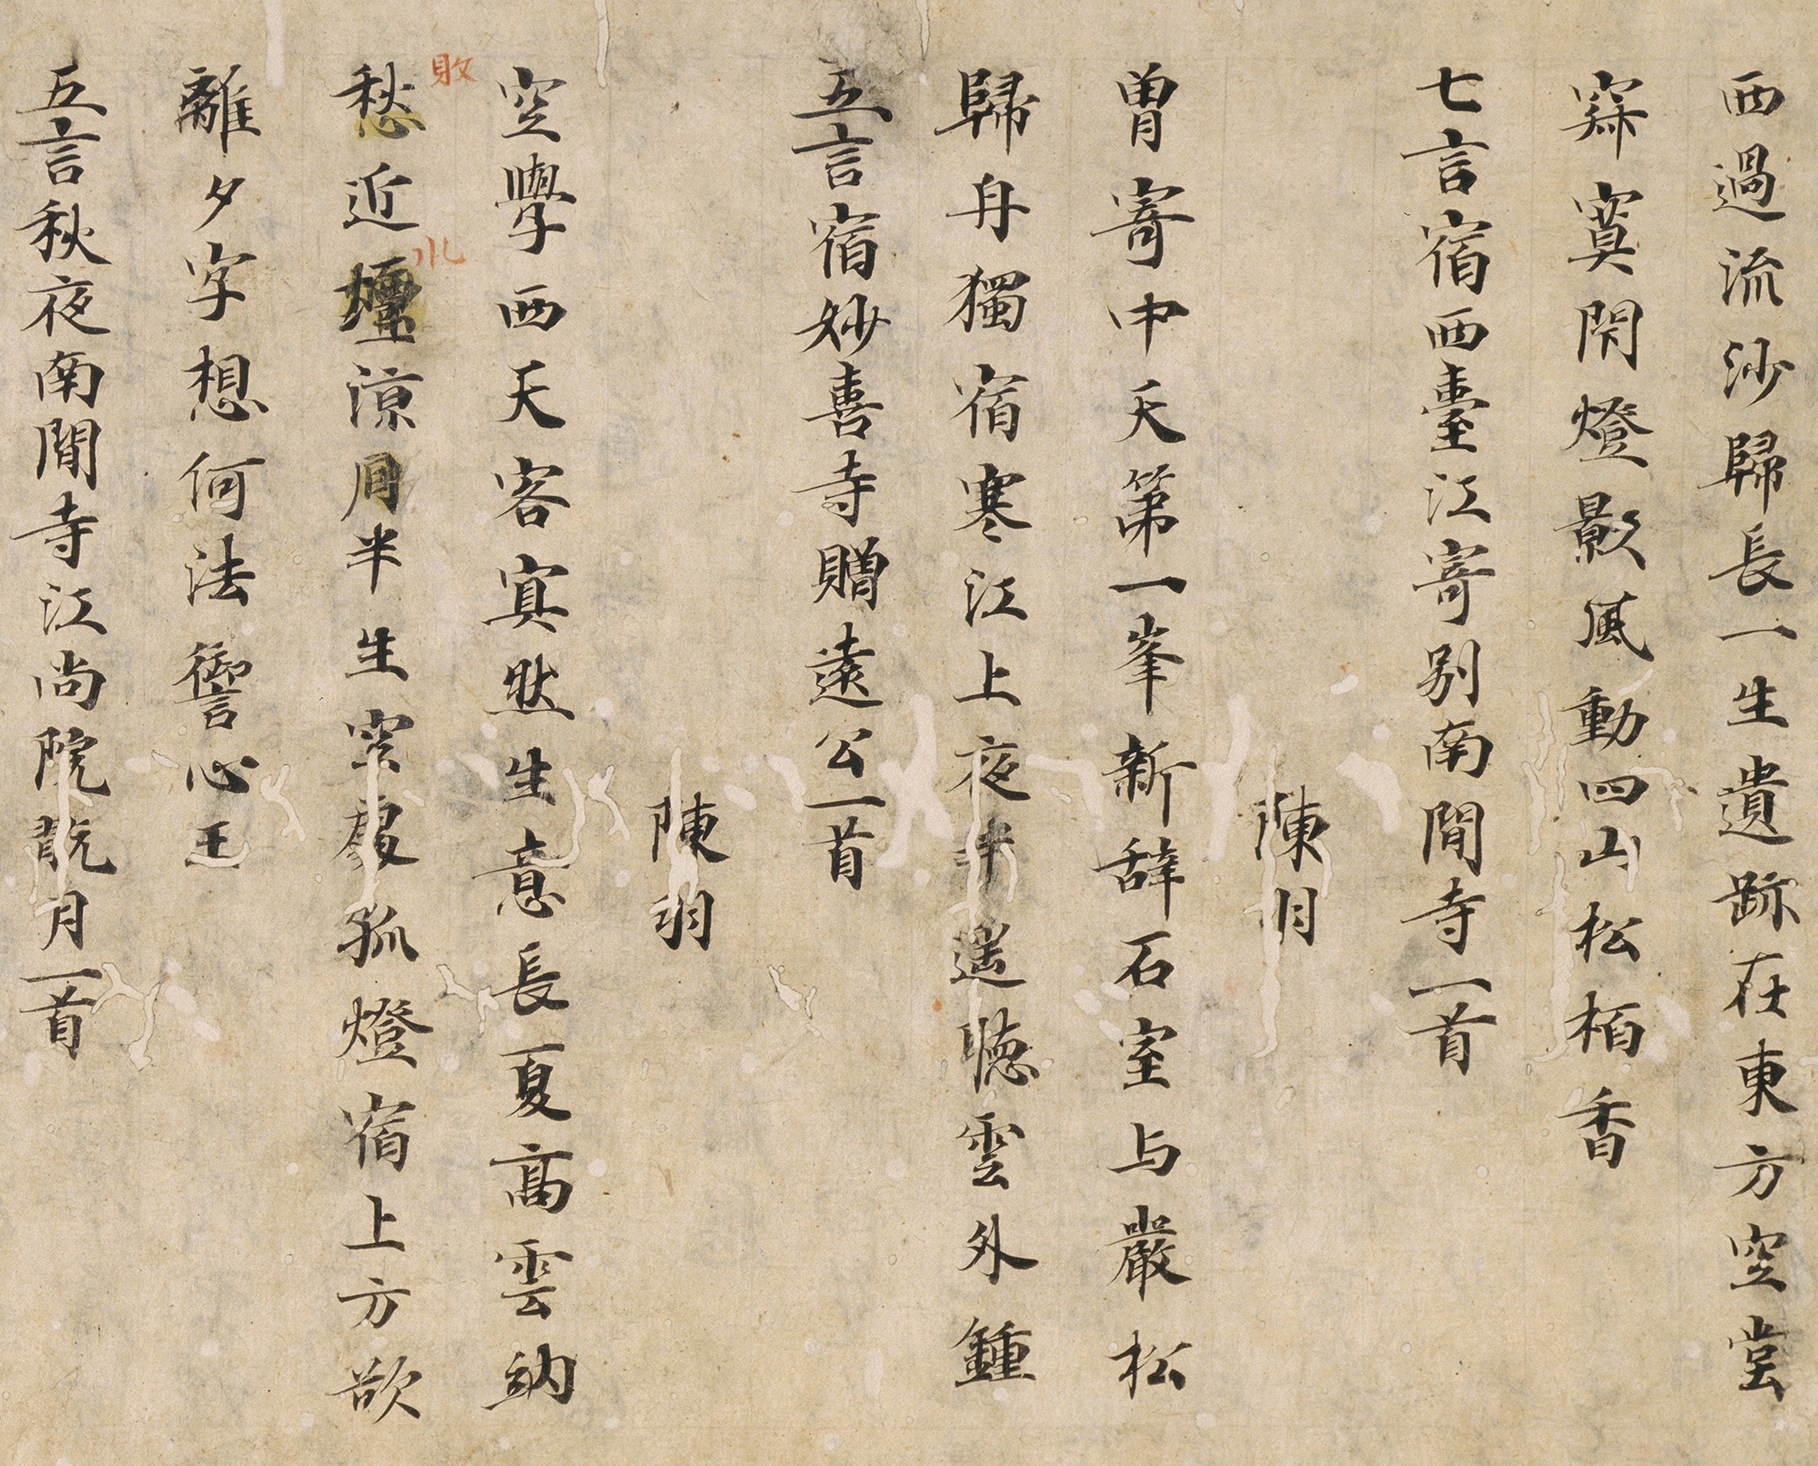 西過流沙歸長一生遺跡在東方空堂
寂寞閇燈影風動四山松栢香
七言宿西臺江寄別南閒寺一首
陳羽
曽寄中天第一峯新辞石室与巖松
歸舟獨宿寒江上夜半遥聴雲外鍾
五言宿妙喜寺贈遠公一首
陳羽
空學西天客寘然生意長夏高雲納
敗
愁近壇涼月半生空處孤燈宿上方欲
水
離夕字想何法心王
五言秋夜南閒寺江尚院翫月一首